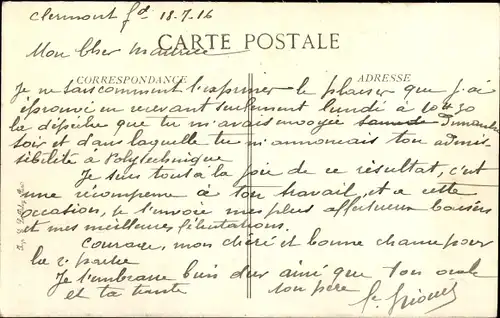 Clermont fd 18-7-16
Mon Cher Maurice
CARTE POSTALE
CORRESPONDANCE
ADRESSE
Je ne sais comment t'exprimer le plaisir que j'ai
éprouvé en recevant seulement lundi à 10h30
la dépêche que tu m'avais envoyée samedi Dimanche
soir et dans laquelle tu m'annonçais ton admis
sibilité à Polytechnique
Je suis tout à la joie de ce résultat, c'est
une récompense à ton travail, et a cette
occasion, je t'envoie mes plus affectueux baisers
et mes meilleures félicitations.
Courage, mon chéri et bonne chance pour
la 2e partie
Je t'embrasse bien dur ainsi que ton oncle
et ta tante
ton père